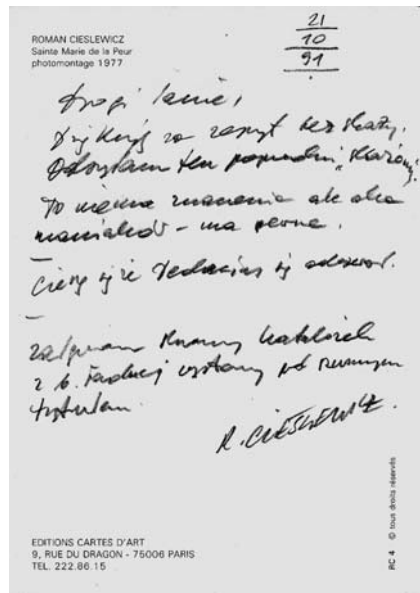 ROMAN CIESLEWICZ
Sainte Marie de la Peur
photomontage 1977
21
10
91
Drogi Panie,
Dziękuję za zeszyt bez skazy.
Odsyłam ten poprzedni „skażony”.
To nie ma znaczenia ale dla
maniaków - ma pewne.
Cieszę się że Dedecius się odezwał.
Załączam katalożek
z b. ładnej wystawy pod
tytułem.
R. CIESLEWICZ.
EDITIONS CARTES D'ART
9, RUE DU DRAGON - 75006 PARIS
TEL. 222.86.15
RC 4 © tous droits réservés